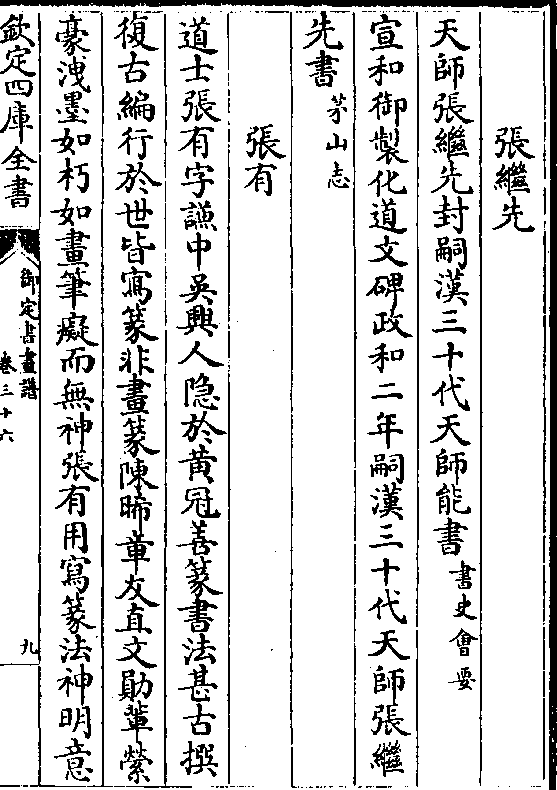 張繼先
天師張繼先封嗣漢三十代天師能書書史會要
宣和御製化道文碑政和二年嗣漢三十代天師張繼
先書茅山志
張有
道士張有字謙中吳興人隐於黄冠善篆書法甚古撰
復古編行於世皆寫篆非畫篆陳晞章友直文勛輩縈
豪洩墨如朽如畫筆癡而無神張有用寫篆法神明意
欽定四庫全書
御定書畫譜
卷三十六
九